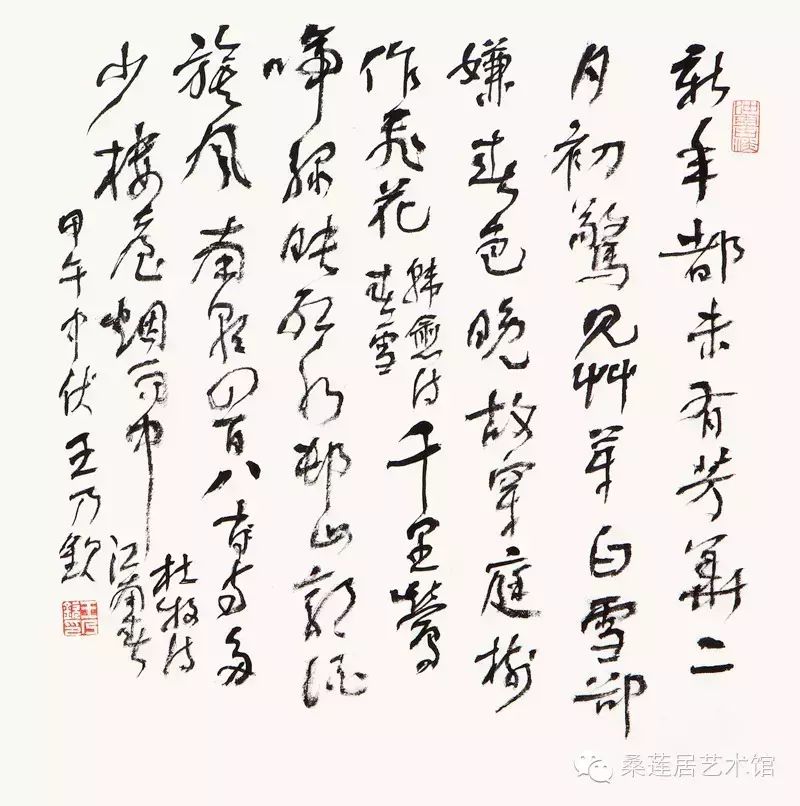 新年都未有芳華二
月初驚見艸芽白雪卻
嫌春色晚故穿庭樹
作飛花
韓愈詩
春雪
千里鶯
啼綠映紅水邨山郭酒
旗風南朝四百八十寺多
少樓臺烟雨中
杜牧詩
江南春
甲午中伏王乃欽
桑莲居艺术馆